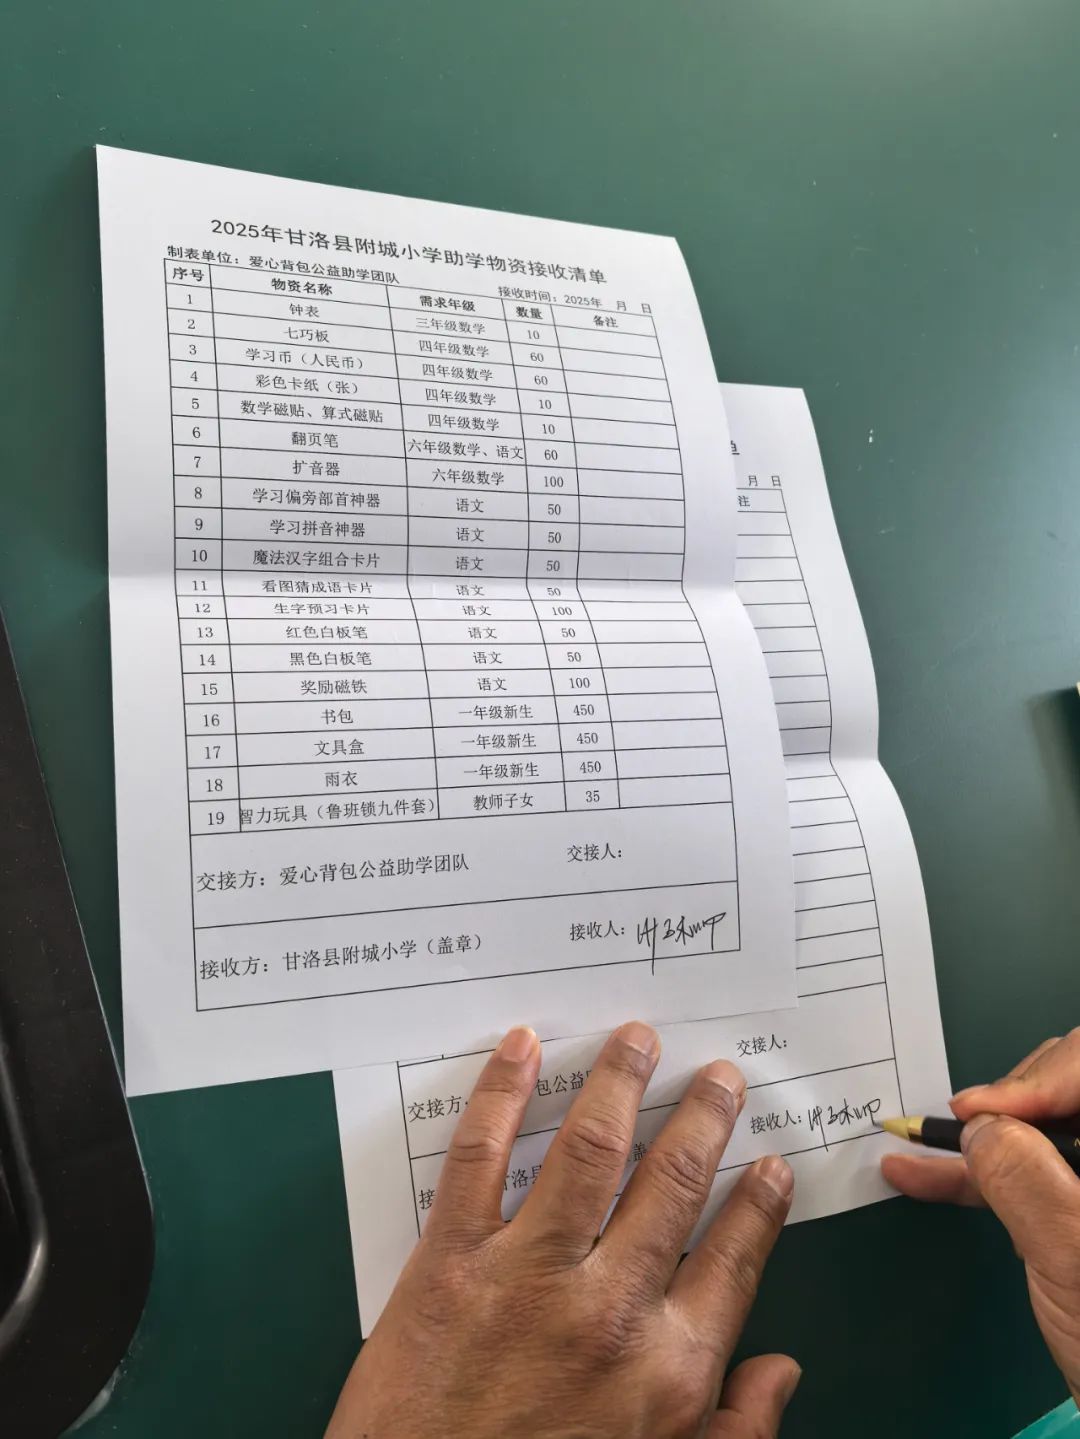 2025年甘洛县附城小学助学物资接收清单
制表单位：爱心背包公益助学团队 接收时间：2025年 月 日
序号 物资名称 需求年级 数量 备注
1 钟表 三年级数学 10
2 七巧板 四年级数学 60
3 学习币（人民币） 四年级数学 60
4 彩色卡纸（张） 四年级数学 10
5 数学磁贴、算式磁贴 四年级数学 10
6 翻页笔 六年级数学、语文 60
7 扩音器 六年级数学 100
8 学习偏旁部首神器 语文 50
9 学习拼音神器 语文 50
10 魔法汉字组合卡片 语文 50
11 看图猜成语卡片 语文 50
12 生字预习卡片 语文 100
13 红色白板笔 语文 50
14 黑色白板笔 语文 50
15 奖励磁铁 语文 100
16 书包 一年级新生 450
17 文具盒 一年级新生 450
18 雨衣 一年级新生 450
19 智力玩具（鲁班锁九件套） 教师子女 35
交接方：爱心背包公益助学团队 交接人：
接收方：甘洛县附城小学（盖章） 接收人：
单
月 日
注
交接方 包公益 交接人：
接 甘洛县 盖 接收人：